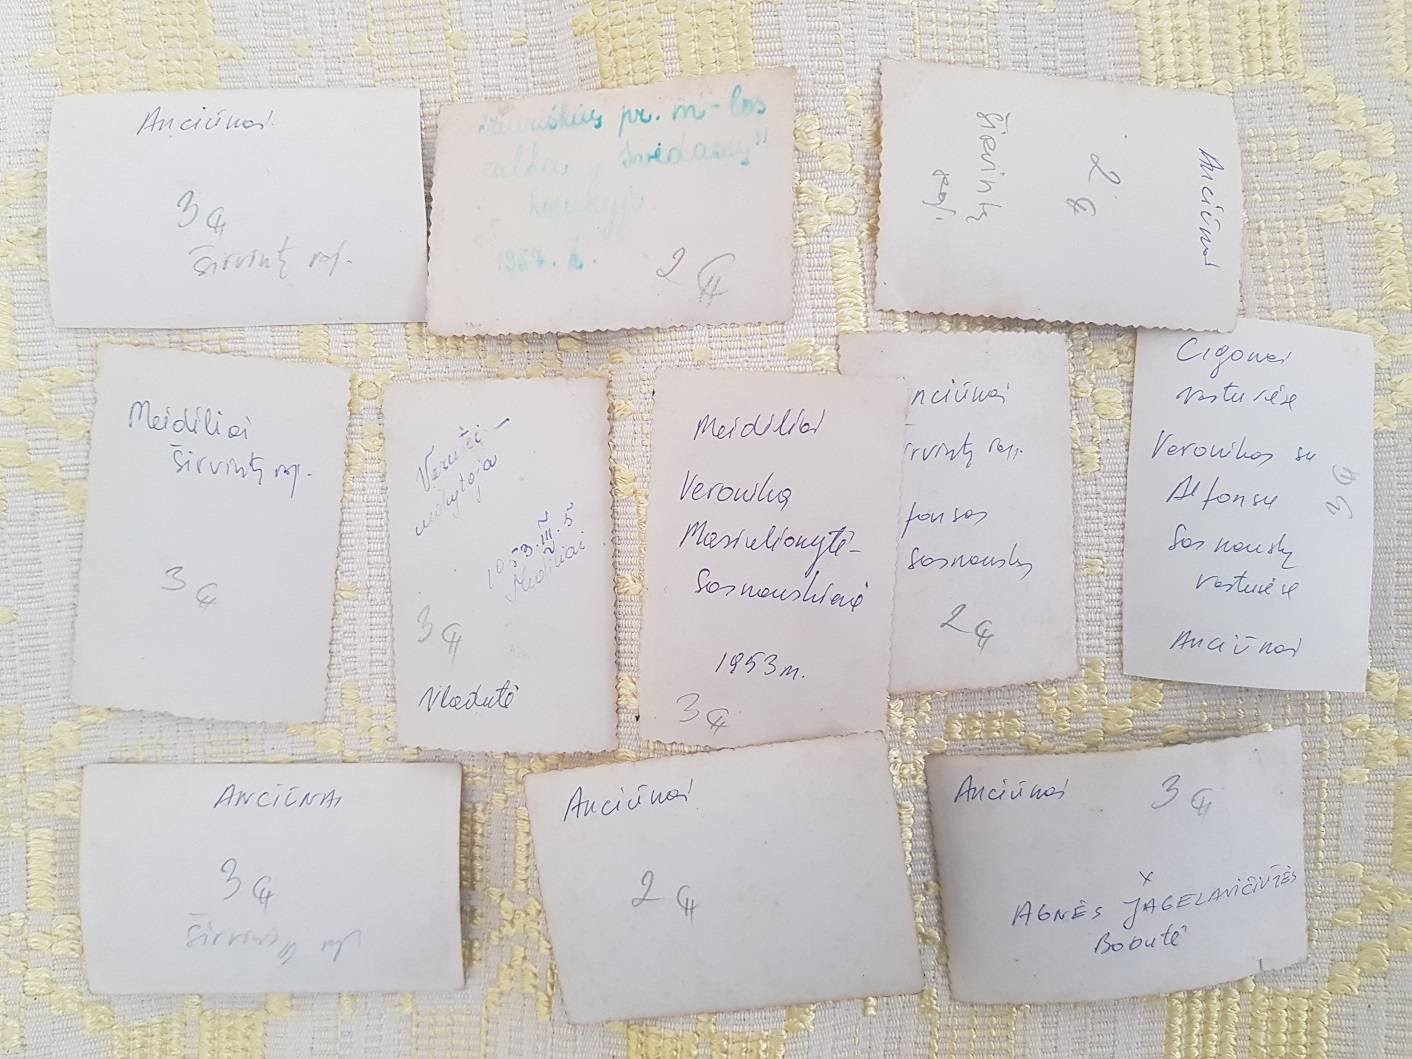 Anciūnai
3 €
Širvintų raj.
pr. m-los
salka „Švedasų"
1957. 2.
2 €
Anciūnai
2 €
Širvintų
raj.
Meidiliai
Širvintų raj.
3 €
Veružei -
mokytoja
1953.III.5
Meidiliai
3 €
Vladutė
Meidiliai
Veronika
Masiulionytė-
Sosnauskienė
1953 m.
3 €
nciūnai
irvintų raj.
fonsas
Sosnauskas
2 €
Cigonai
vestuvėse
Veronikos su
Alfonsu
Sosnauskų
vestuvėse
Anciūnai
3 €
ANCIŪNAI
3 €
Širvintų raj.
Anciūnai
2 €
Anciūnai
3 €
x
AGNĖS JAGELAVIČIŪTĖS
Bobutė